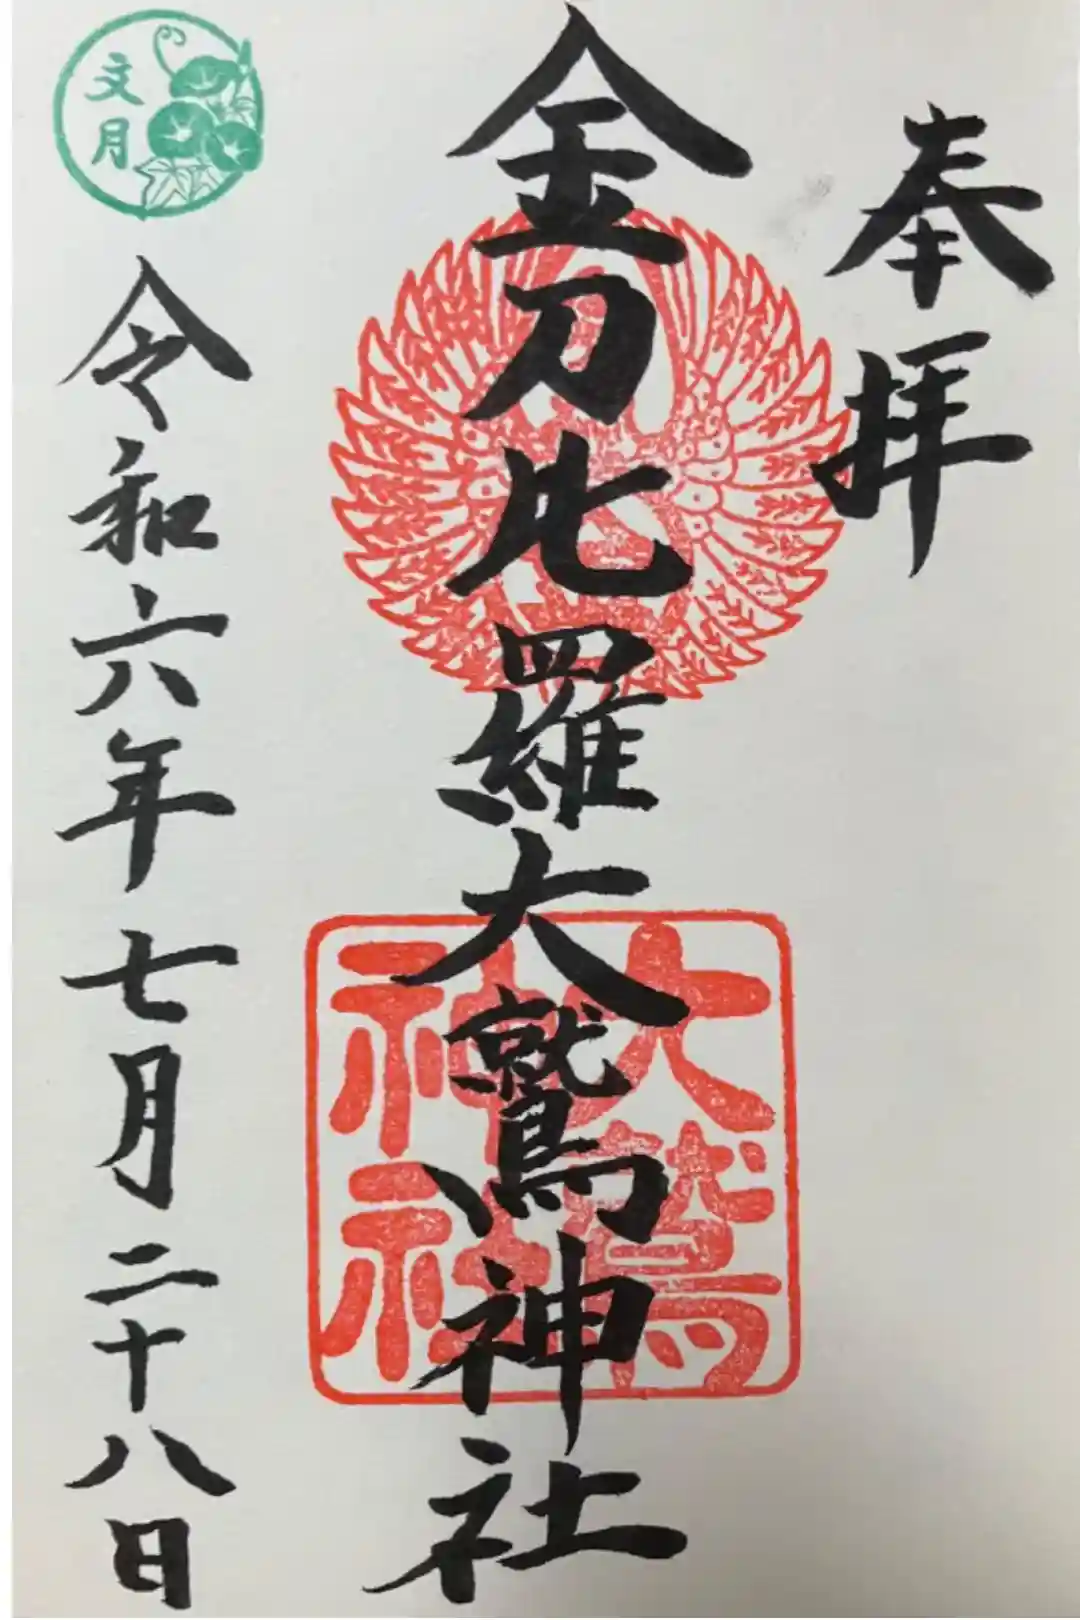 奉拝
金刀比羅大鷲神社
大鷲
神社
文月
令和六年七月二十八日